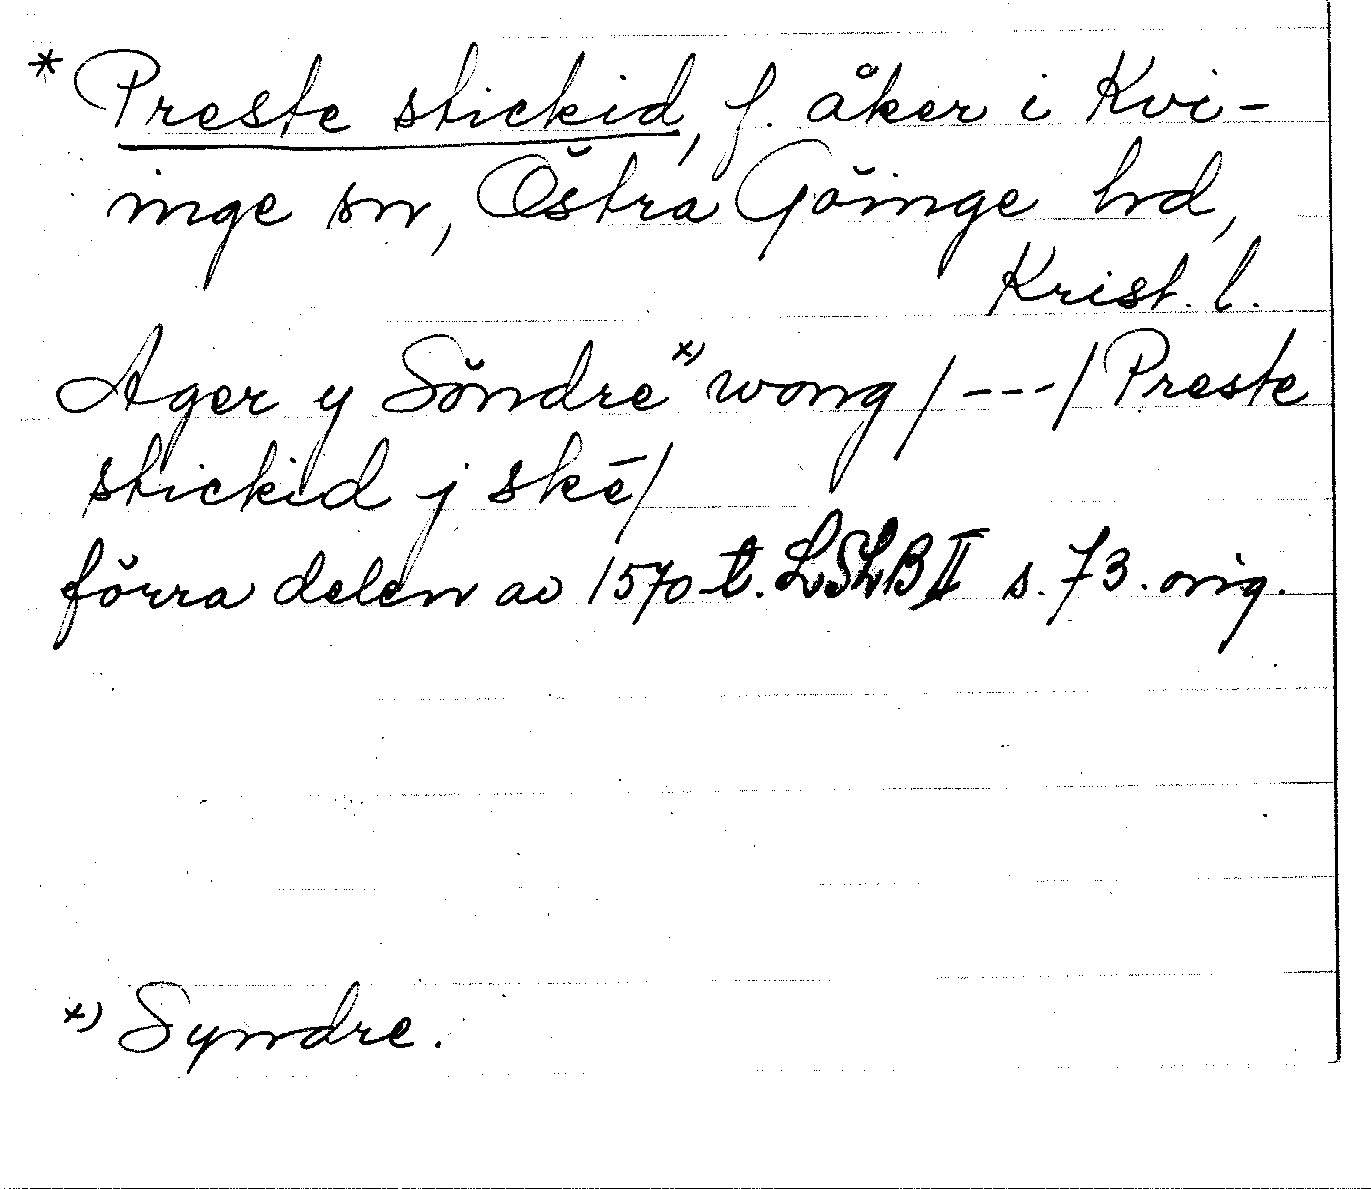 * Preste stickid, f. åker i Kvi-
inge sn, Östra Göinge hd,
Krist. l.
Ager y Söndre x) wong /---/ Preste
stickid j skē/
förra delen av 1570-t. LSLB II s. 73. orig.
x) Syndre.